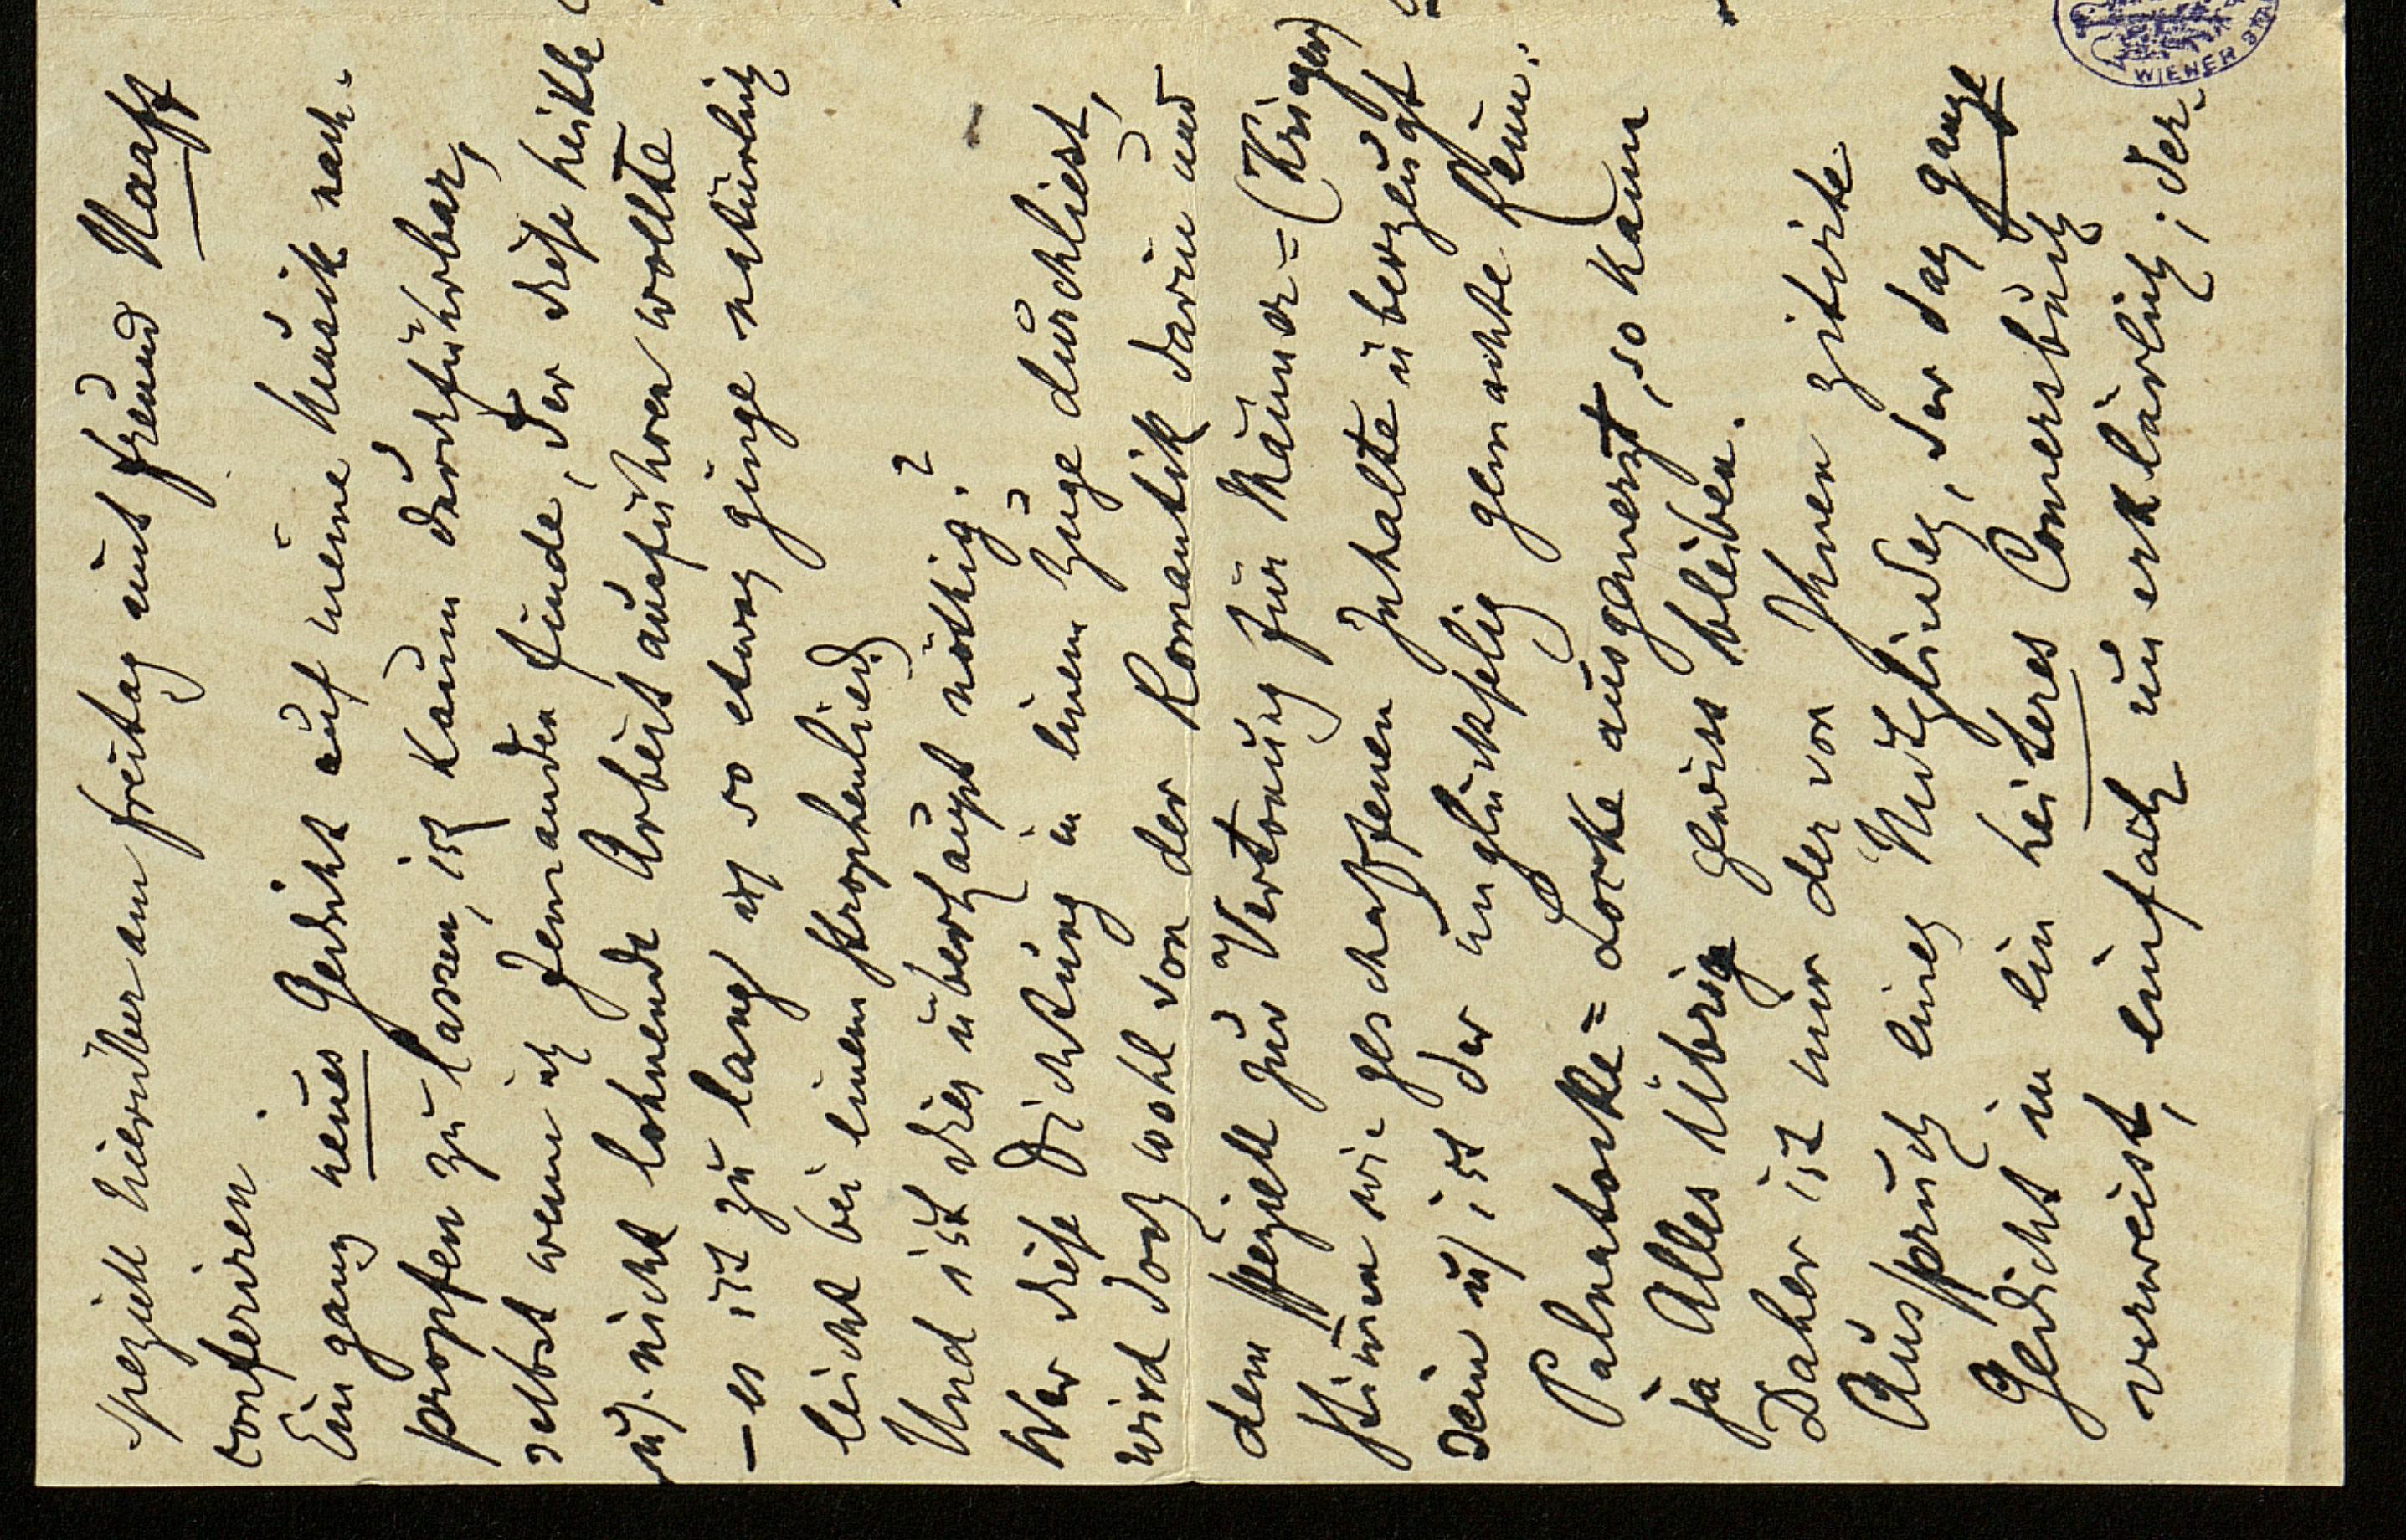 speziell hierüber am Freitag mit Freund Naaff
conferiren.
Ein ganz neues Gedicht auf meine Musik nach-
propfen zu lassen, ist kaum durchführbar,
selbst wenn ich Jemanden finde, der diese heikle
u. nicht lohnende Arbeit ausführen wollte
– es ist zu lang u so etwas ginge natürlich
leicht bei einem Strophenlied)
Und ist dies überhaupt nöthig?
Wer diese Dichtung in einem Zuge durchliest,
wird doch wohl von der Romantik darin und
dem speziell zur Vertonung für Männer= (Krieger)
stimmen wie geschaffenen Inhalte überzeugt
sein u ist der unglückselig gemachte Reim:
Palnatoke= Locke ausgemerzt, so kann
ja Alles Übrige gewiss bleiben.
Daher ist mir der von Ihnen zitirte
Ausspruch eines Mitgliedes, der das ganze
Gedicht in ein heiteres Comersbuch
verweist, einfach unerklärlich; der-
WIENER